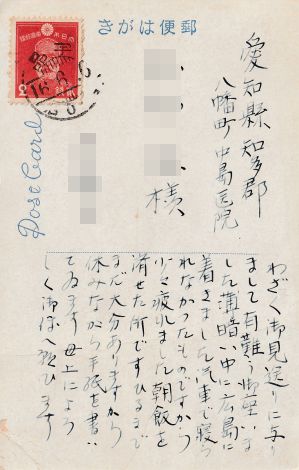 きがは便郵
愛知縣知多郡
八幡町中島医院
様
Post Card
わざ〱御見送りに与り
まして有難う御座いま
した 薄暗い中に広島に
着きました 汽車で寝ら
れなかったものですから
少々疲れました 朝飯を
済せた所ですひるまで
まだ大分ありますから
休みながら手紙を書い
てゐます 母上によろ
しく御伝へ願ひます